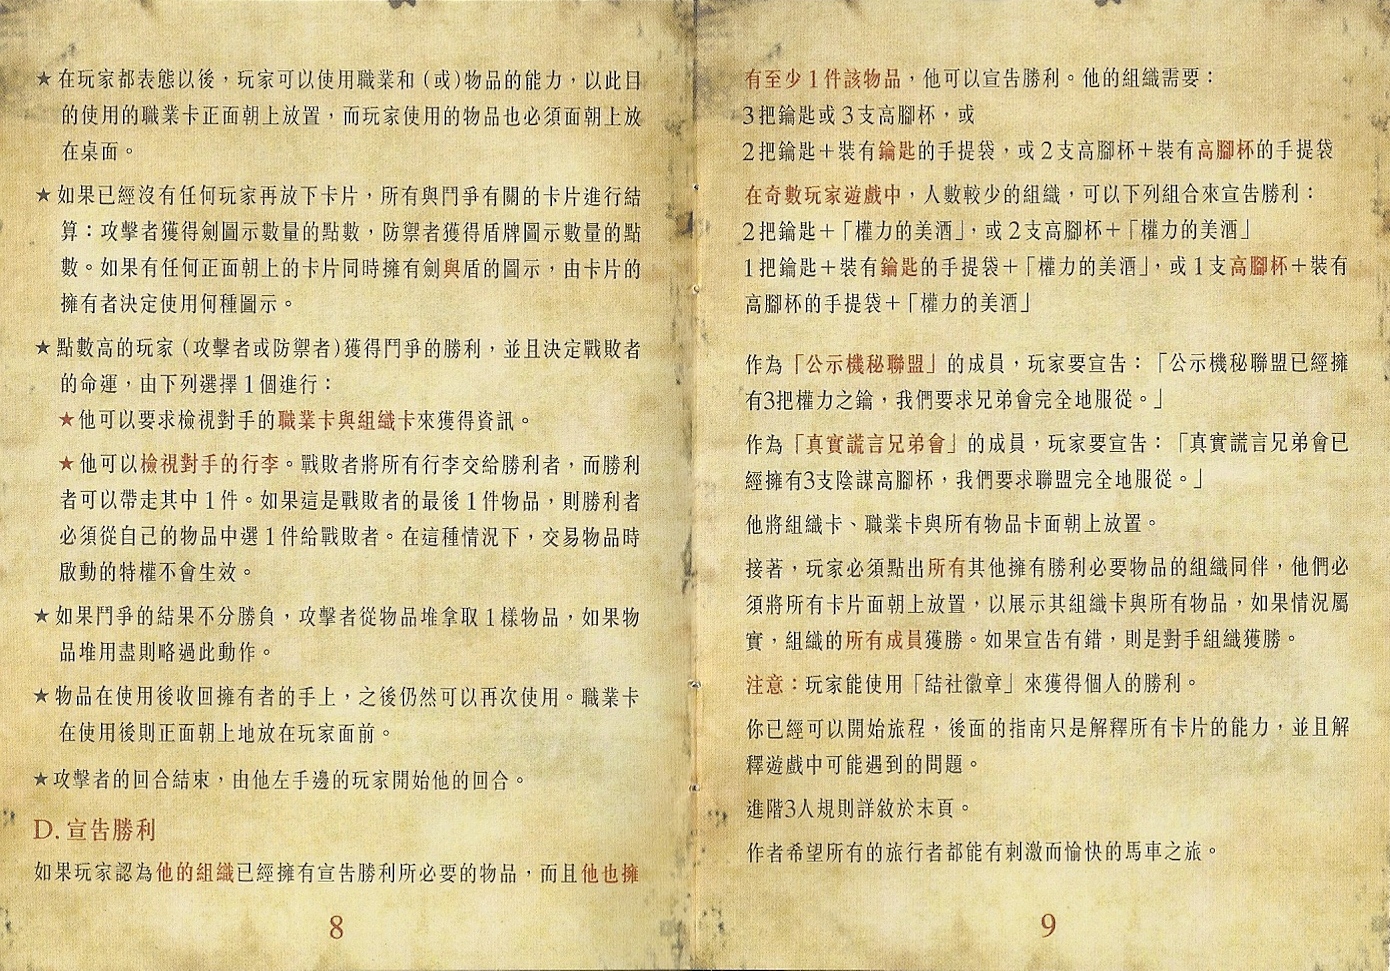 ★在玩家都表態以後，玩家可以使用職業和（或）物品的能力，以此目
的使用的職業卡正面朝上放置，而玩家使用的物品也必須面朝上放
在桌面。
★如果已經沒有任何玩家再放下卡片，所有與鬥爭有關的卡片進行結
算：攻擊者獲得劍圖示數量的點數，防禦者獲得盾牌圖示數量的點
數。如果有任何正面朝上的卡片同時擁有劍與盾的圖示，由卡片的
擁有者決定使用何種圖示。
★點數高的玩家（攻擊者或防禦者）獲得鬥爭的勝利，並且決定戰敗者
的命運，由下列選擇1個進行：
★他可以要求檢視對手的職業卡與組織卡來獲得資訊。
★他可以檢視對手的行李。戰敗者將所有行李交給勝利者，而勝利
者可以帶走其中1件。如果這是戰敗者的最後1件物品，則勝利者
必須從自己的物品中選1件給戰敗者。在這種情況下，交易物品時
啟動的特權不會生效。
★如果鬥爭的結果不分勝負，攻擊者從物品堆拿取1樣物品，如果物
品堆用盡則略過此動作。
★物品在使用後收回擁有者的手上，之後仍然可以再次使用。職業卡
在使用後則正面朝上地放在玩家面前。
★攻擊者的回合結束，由他左手邊的玩家開始他的回合。
D. 宣告勝利
如果玩家認為他的組織已經擁有宣告勝利所必要的物品，而且他也擁
8
有至少1件該物品，他可以宣告勝利。他的組織需要：
3把鑰匙或3支高腳杯，或
2把鑰匙＋裝有鑰匙的手提袋，或2支高腳杯＋裝有高腳杯的手提袋
在奇數玩家遊戲中，人數較少的組織，可以下列組合來宣告勝利：
2把鑰匙＋「權力的美酒」，或2支高腳杯＋「權力的美酒」
1把鑰匙＋裝有鑰匙的手提袋＋「權力的美酒」，或1支高腳杯＋裝有
高腳杯的手提袋＋「權力的美酒」
作為「公示機秘聯盟」的成員，玩家要宣告：「公示機秘聯盟已經擁
有3把權力之鑰，我們要求兄弟會完全地服從。」
作為「真實謊言兄弟會」的成員，玩家要宣告：「真實謊言兄弟會已
經擁有3支陰謀高腳杯，我們要求聯盟完全地服從。」
他將組織卡、職業卡與所有物品卡面朝上放置。
接著，玩家必須點出所有其他擁有勝利必要物品的組織同伴，他們必
須將所有卡片面朝上放置，以展示其組織卡與所有物品，如果情況屬
實，組織的所有成員獲勝。如果宣告有錯，則是對手組織獲勝。
注意：玩家能使用「結社徽章」來獲得個人的勝利。
你已經可以開始旅程，後面的指南只是解釋所有卡片的能力，並且解
釋遊戲中可能遇到的問題。
進階3人規則詳敘於末頁。
作者希望所有的旅行者都能有刺激而愉快的馬車之旅。
9